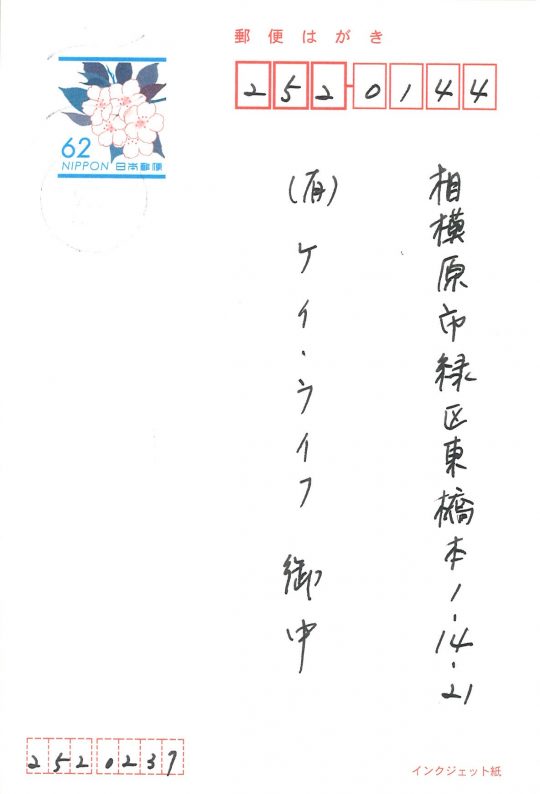 郵便はがき
252-0144
62
NIPPON 日本郵便
相模原市緑区東橋本1-14-21
(有)ケイ・ライフ 御中
2520237
インクジェット紙